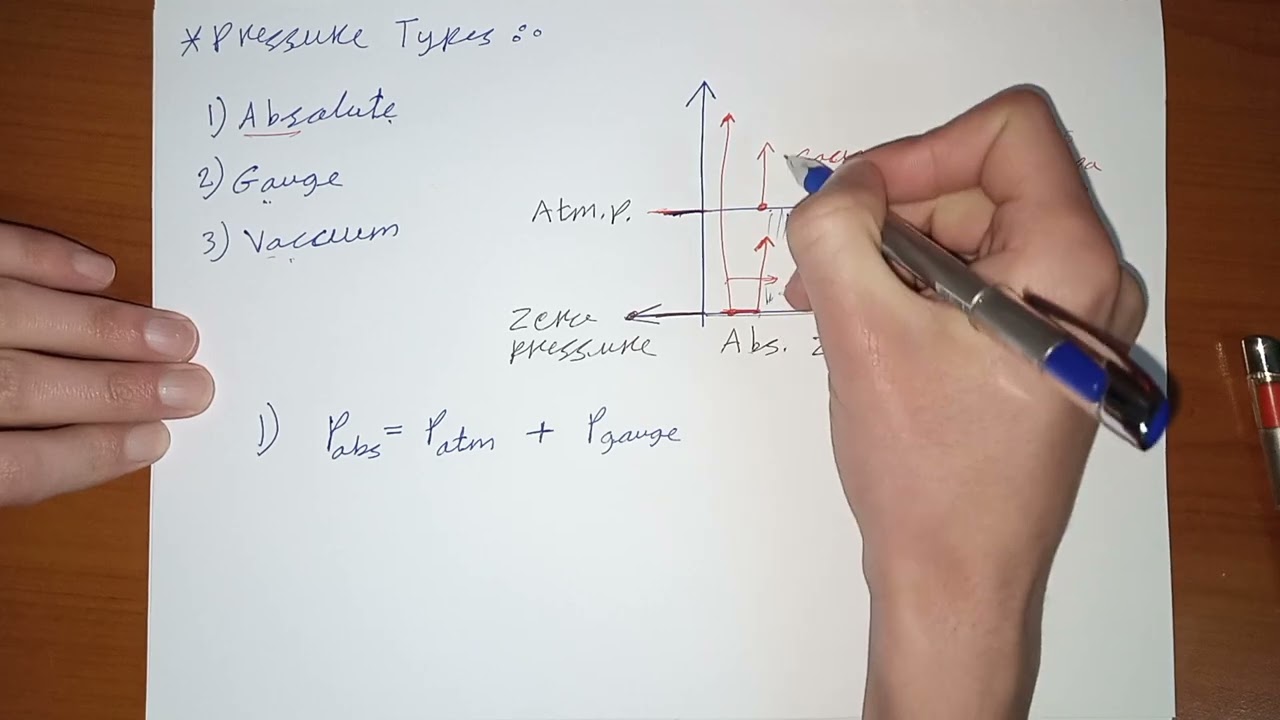 * Pressure Types :
1) Absolute
2) Gauge
3) Vacuum
Atm.P.
Zero
pressure
Abs.
1) Pabs = Patm + Pgauge